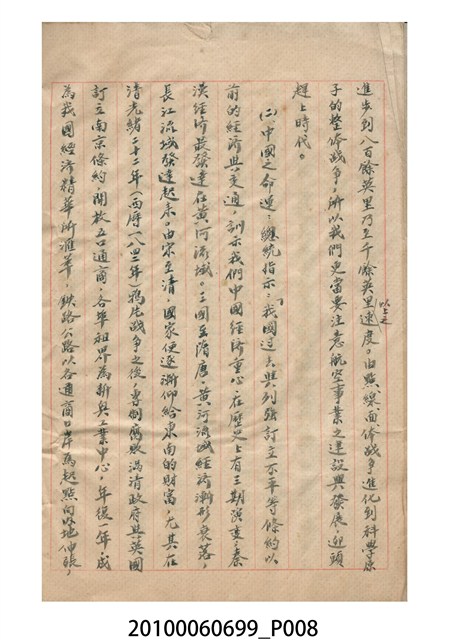 進步到八百餘英里乃至千餘英里以上之速度。由點線面体战争進化到科學原
子的整体战争，所以我們更當要注意航空事業之建設與發展，迎頭
趕上時代。
(二)中國之命運：總統指示：「我國過去與列強訂立不平等條約以
前的經濟與交通，訓示我們中國經濟重心在歷史上有三期演變，秦
漢經濟最發達在黃河流域。三國至隋唐，黃河流域經濟漸形衰落，
長江流域發達起來。由宋至清，國家便逐漸仰給東南的財富，尤其在
清光緒二十二年(西曆一八四二年)鴉片战争之後，專制腐敗滿清政府與英國
訂立南京條約，開放五口通商，各埠租界為新興工業中心，年復一年，成
為我國經濟精華所滙萃，鉄路公路以各通商口岸為起點向內地伸張，
20100060699_P008